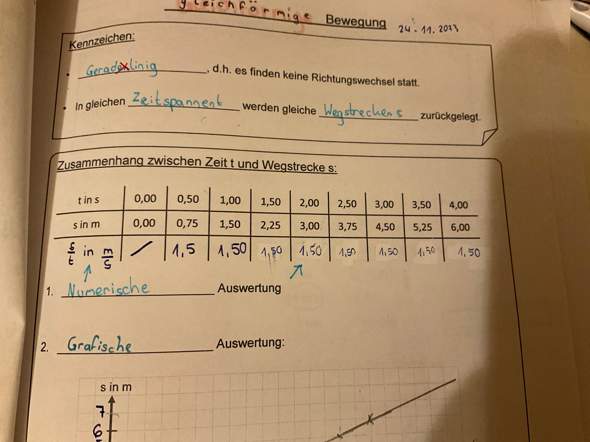 gleichförmige Bewegung 24.11.2023
Kennzeichen:
• Geradlinig, d.h. es finden keine Richtungswechsel statt.
• In gleichen Zeitspannen t werden gleiche Wegstrecken s zurückgelegt.
Zusammenhang zwischen Zeit t und Wegstrecke s:
t in s 0,00 0,50 1,00 1,50 2,00 2,50 3,00 3,50 4,00
s in m 0,00 0,75 1,50 2,25 3,00 3,75 4,50 5,25 6,00
s/t in m/s / 1,5 1,50 1,50 1,50 1,50 1,50 1,50 1,50
1. Numerische Auswertung
2. Grafische Auswertung:
s in m
7
6